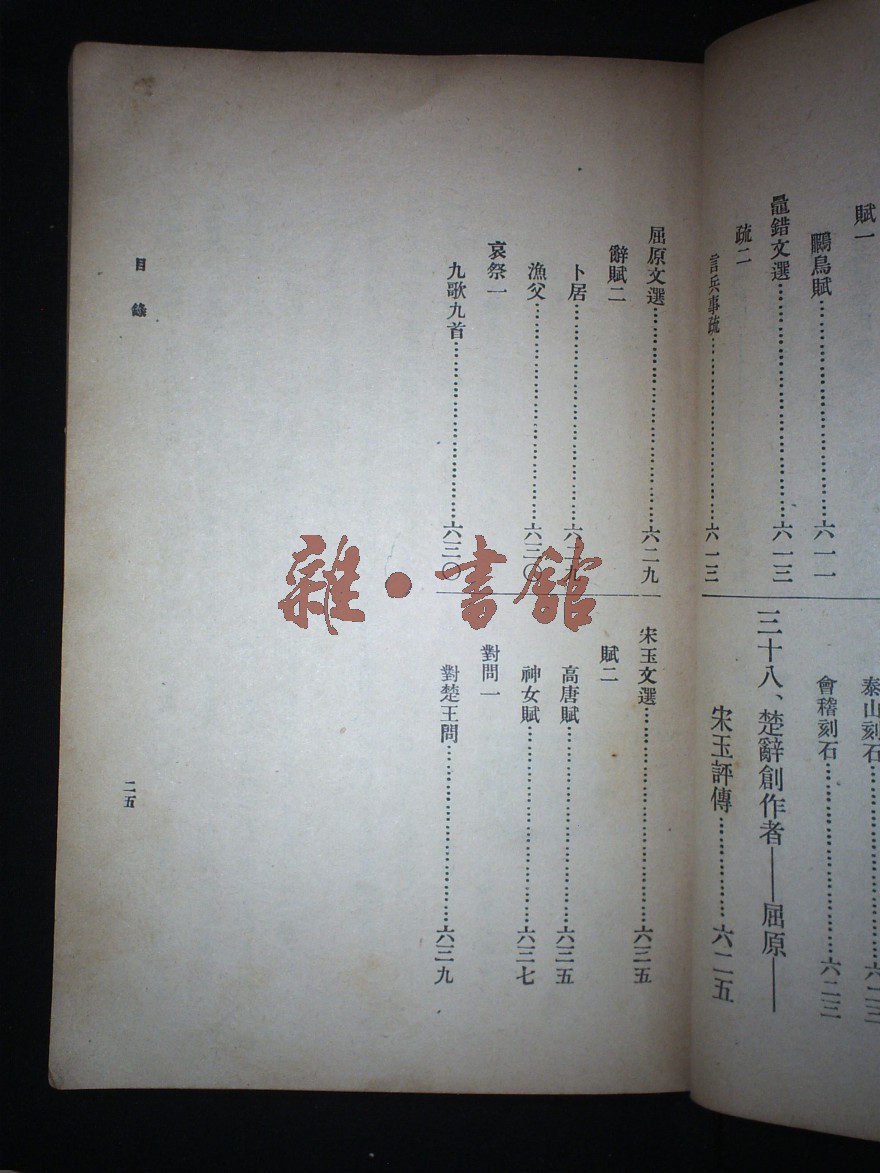 賦一
鵩鳥賦……六一一
鼂錯文選……六一三
疏二
言兵事疏……六一三
泰山刻石……六二三
會稽刻石……六二三
三十八、楚辭創作者——屈原——
宋玉評傳……六二五
屈原文選……六二九
辭賦二
卜居……六二九
漁父……六三〇
哀祭一
九歌九首……六三〇
宋玉文選……六三五
賦二
高唐賦……六三五
神女賦……六三七
對問一
對楚王問……六三九
目錄
二五
雜·書館